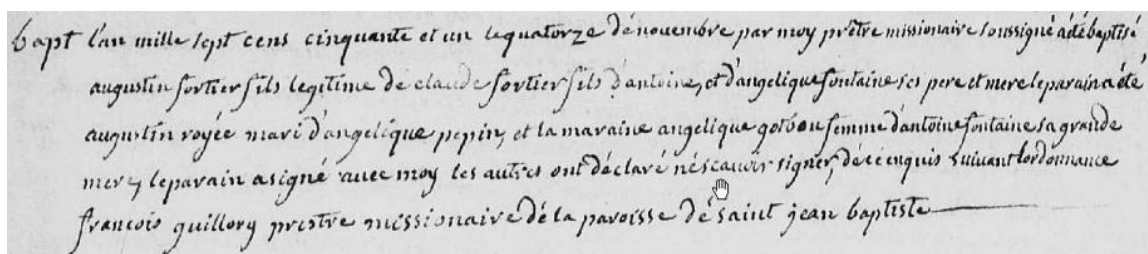 bapt l'an mille sept cens cinquante et un le quatorze dé novembre par moy prêtre missionaire soussigné a été baptisé
augustin fortier fils legitime de claude fortier fils d'antoine, et d'angelique fontaine ses pere et mere le parain a été
augustin royée mari d'angelique pepin, et la maraine angelique gotbou femme d'antoine fontaine sa grande
mere, le parain a signé avec moy les autres ont déclaré né scavoir signer, dé ce enquis suivant l'ordonnance
francois guillory prestre missionaire dé la paroisse dé saint jean baptiste